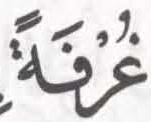 غُرْفَةً